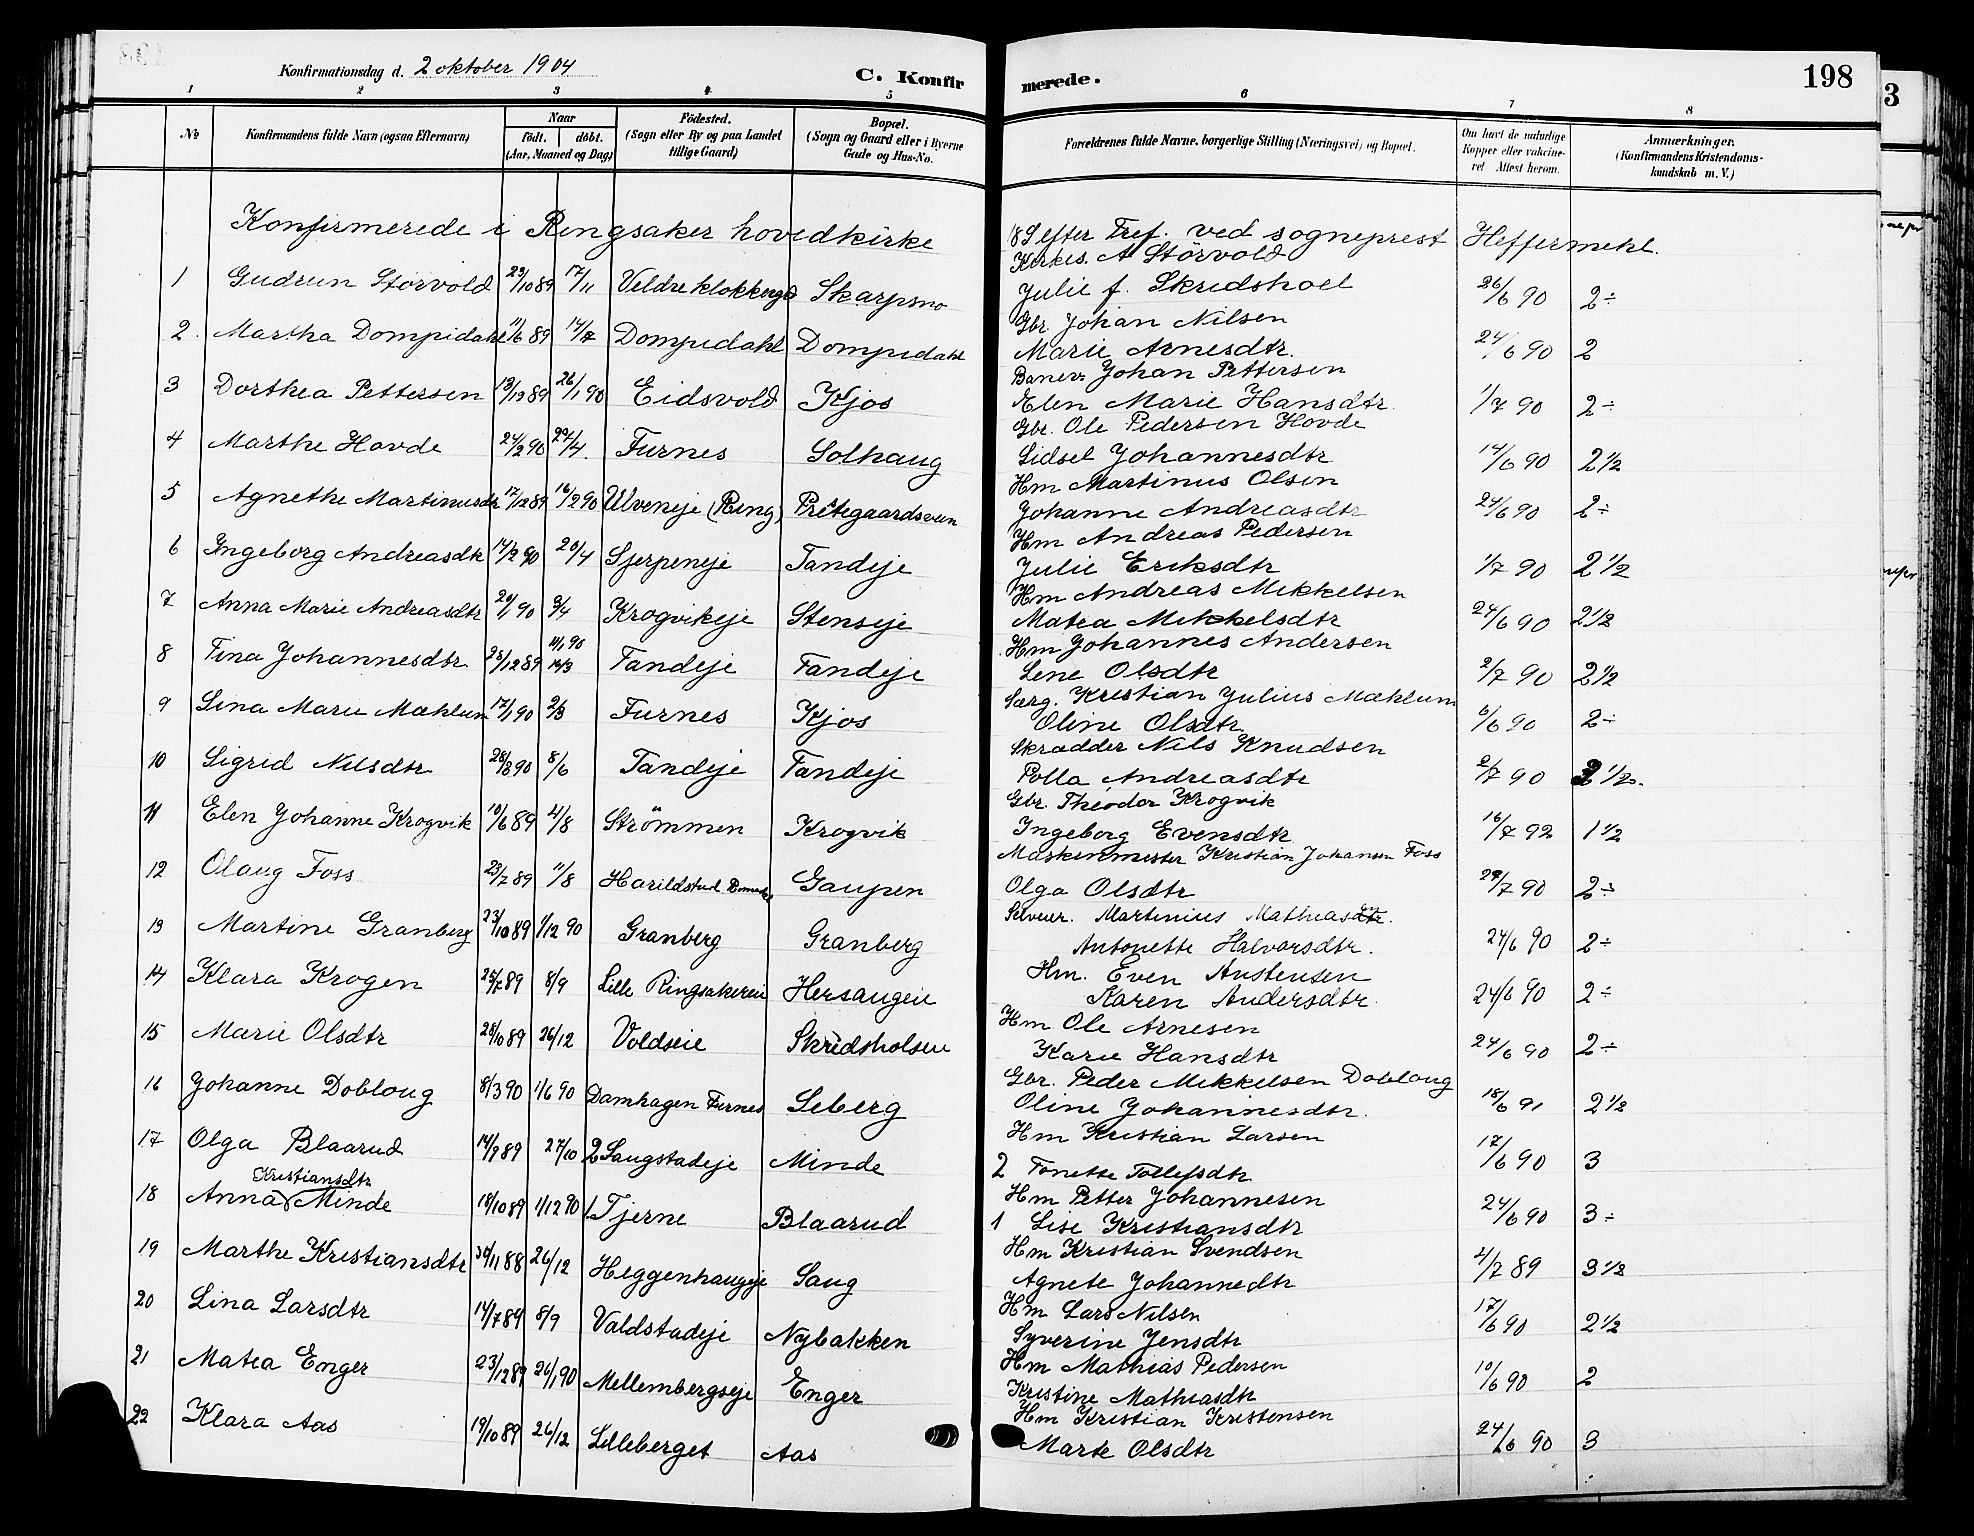 Konfirmationsdag d. 2 oktober 1904 C. Konfirmerede. 198
1 2 3 4 5 6 7 8
No Konfirmandens fulde Navn (ogsaa Efternavn) Naar født. døbt. (Aar, Maaned og Dag) Fødested. (Sogn eller By og paa Landet tillige Gaard) Bopæl. (Sogn og Gaard eller i Byerne Gade og Hus-No. Forældrenes fulde Navne, borgerlige Stilling (Næringsvei) og Bopæl. Om havt de naturlige Kopper eller vakcineret Attest herom. Anmærkninger. (Konfirmandens Kristendomskundskab m. V.)
Konfirmerede i Ringsaker hovedkirke 18 S efter Tref. ved sogneprest Heffermehl.
Kirkes. A Störvold
1 Gudrun Störvold 23/10 89 17/11 Veldre klokkergd Skarpsno Julie f. Skredshoel 26/6 90 2÷
Gbr. Johan Nilsen
2. Martha Dompidahl 11/6 89 14/7 Dompidahl Dompidahl Marie Arnesdtr. 24/6 90 2
Banev. Johan Pettersen
3 Dorthea Pettersen 13/12 89 26/1 90 Eidsvold Kjos Elen Marie Hansdtr. 1/7 90 2÷
Gbr. Ole Pedersen Hovde
4 Marthe Hovde 24/2 90 27/4. Furnes Solhaug Sidsel Johannesdtr 14/6 90 2 1/2
Hm Martinus Olsen
5 Agnethe Martinusdtr 17/12 89 16/2 90 Ulveneje (Ring) Prestegaardsveen Johanne Andreasdtr 24/6 90 2÷
Hm Andreas Pedersen
6 Ingeborg Andreasdtr 14/2 90 20/4 Sjerpeneje Tandeje Julie Eriksdtr 1/7 90 2 1/2
Hm Andreas Mikkelsen
7 Anna Marie Andreasdtr 20/1 90 9/4 Krogvikeje Stenseje Matea Mikkelsdtr 24/6 90 2 1/2
Hm Johannes Andersen
8 Tina Johannesdtr 28/12 89 Tandeje Tandeje Lene Olsdtr 2/7 90 2 1/2
Sarg. Kristian Julius Mæhlum
9 Lina Marie Mæhlum 17/1 90 2/3 Furnes Kjos Oline Olsdtr. 6/6 90 2÷
Skrædder Nils Knudsen
10 Sigrid Nilsdtr 28/3 90 8/6 Tandeje Tandeje Polla Andreasdtr 2/7 90 2 1/2.
Gbr. Theodor Krogvik
11 Elen Johanne Krogvik 10/6 89 4/8 Strömmen Krogvik Ingeborg Evensdtr 16/7 92 1 1/2
Maskinmester Kristian Johansen Foss
12 Olaug Foss 23/7 89 11/8 Harildstad Gaupen Olga Olsdtr 29/7 90 2÷
Selveier. Martinius Mathiasen.
13 Martine Granberg 23/10 89 1/12 90 Granberg Granberg Antonette Halvorsdtr. 24/6 90 2÷
Hm. Even Austensen
14 Klara Krogen 25/7 89 8/9 Lille Ringsakereie Hersaugeie Karen Andersdtr. 24/6 90 2÷
Hm Ole Arnesen
15 Marie Olsdtr 28/10 89 26/12 Voldseie Skredsholseie Karie Hansdtr 24/6 90 2÷
Gbr. Peder Mikkelsen Dobloug
16 Johanne Dobloug 8/3 90 1/6 90 Damhagen Furnes Seberg Oline Johannesdtr. 18/6 91 2 1/2
Hm Kristian Larsen
17 Olga Blaarud 14/9 89 27/10 2 Saugstadeje Minde 2 Tonette Tollefsdtr 17/6 90 3
Kristiansdtr Hm Petter Johannesen
18 Anna Minde 19/10 89 1/12 90 1. Tjerne Blaarud 1 Lise Kristiansdtr 24/6 90 3÷
Hm Kristian Svendsen
19 Marthe Kristiansdtr 30/11 88 26/12 Heggenhaugeje Saug Agnete Johannedtr 4/7 89 3 1/2
Hm Lars Nilsen
20 Lina Larsdtr 14/7 89 8/9 Valdstadeje Nybakken Syverine Jensdtr 17/6 90 2 1/2
Hm Mathias Pedersen
21 Matea Enger 23/12 89 26/1 90 Mellembergseje Enger Kristine Mathiasdtr 10/6 90 2
Hm Kristian Kristensen
22 Klara Aas 19/10 89 26/12 Lilleberget Aas Marte Olsdtr 24/6 90 3